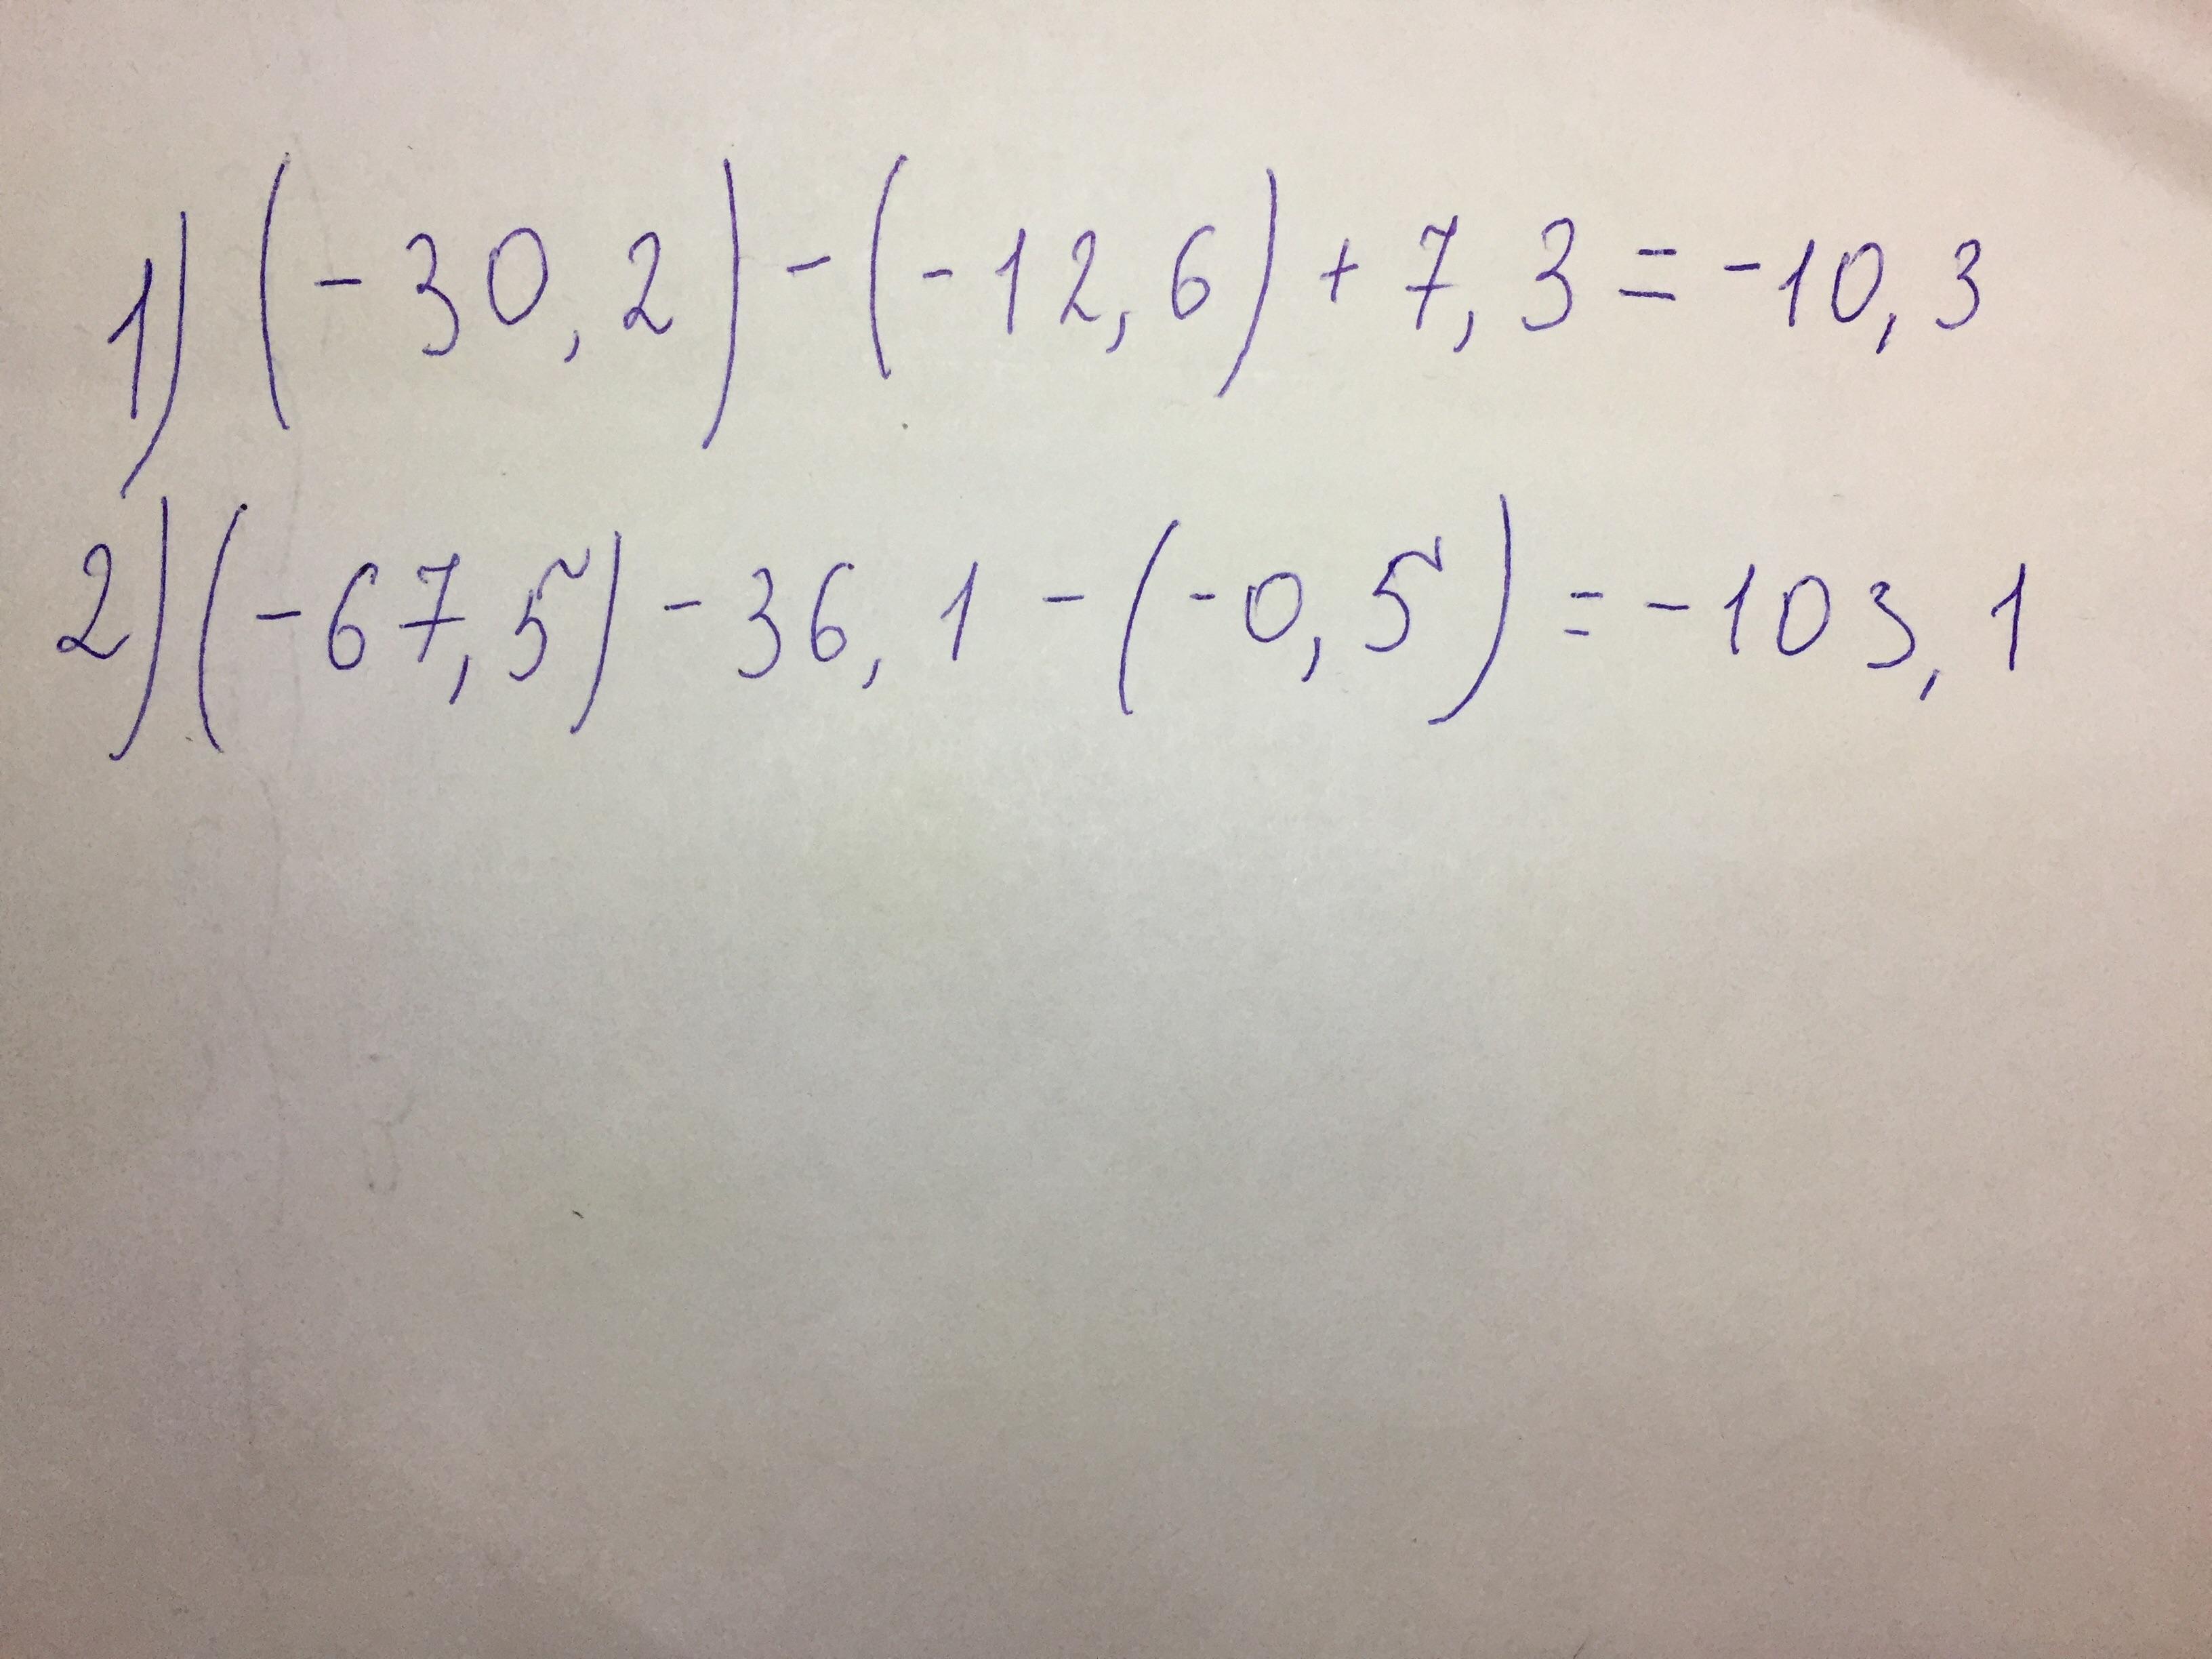 1) (-30,2) - (-12,6) + 7,3 = -10,3
2) (-67,5) - 36,1 - (-0,5) = -103,1